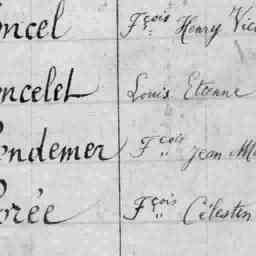 ncel Fçois Henry Vic
ncelet Louis Etienne
ndemer Fçois Jean Ma
orée Fçois Célestin